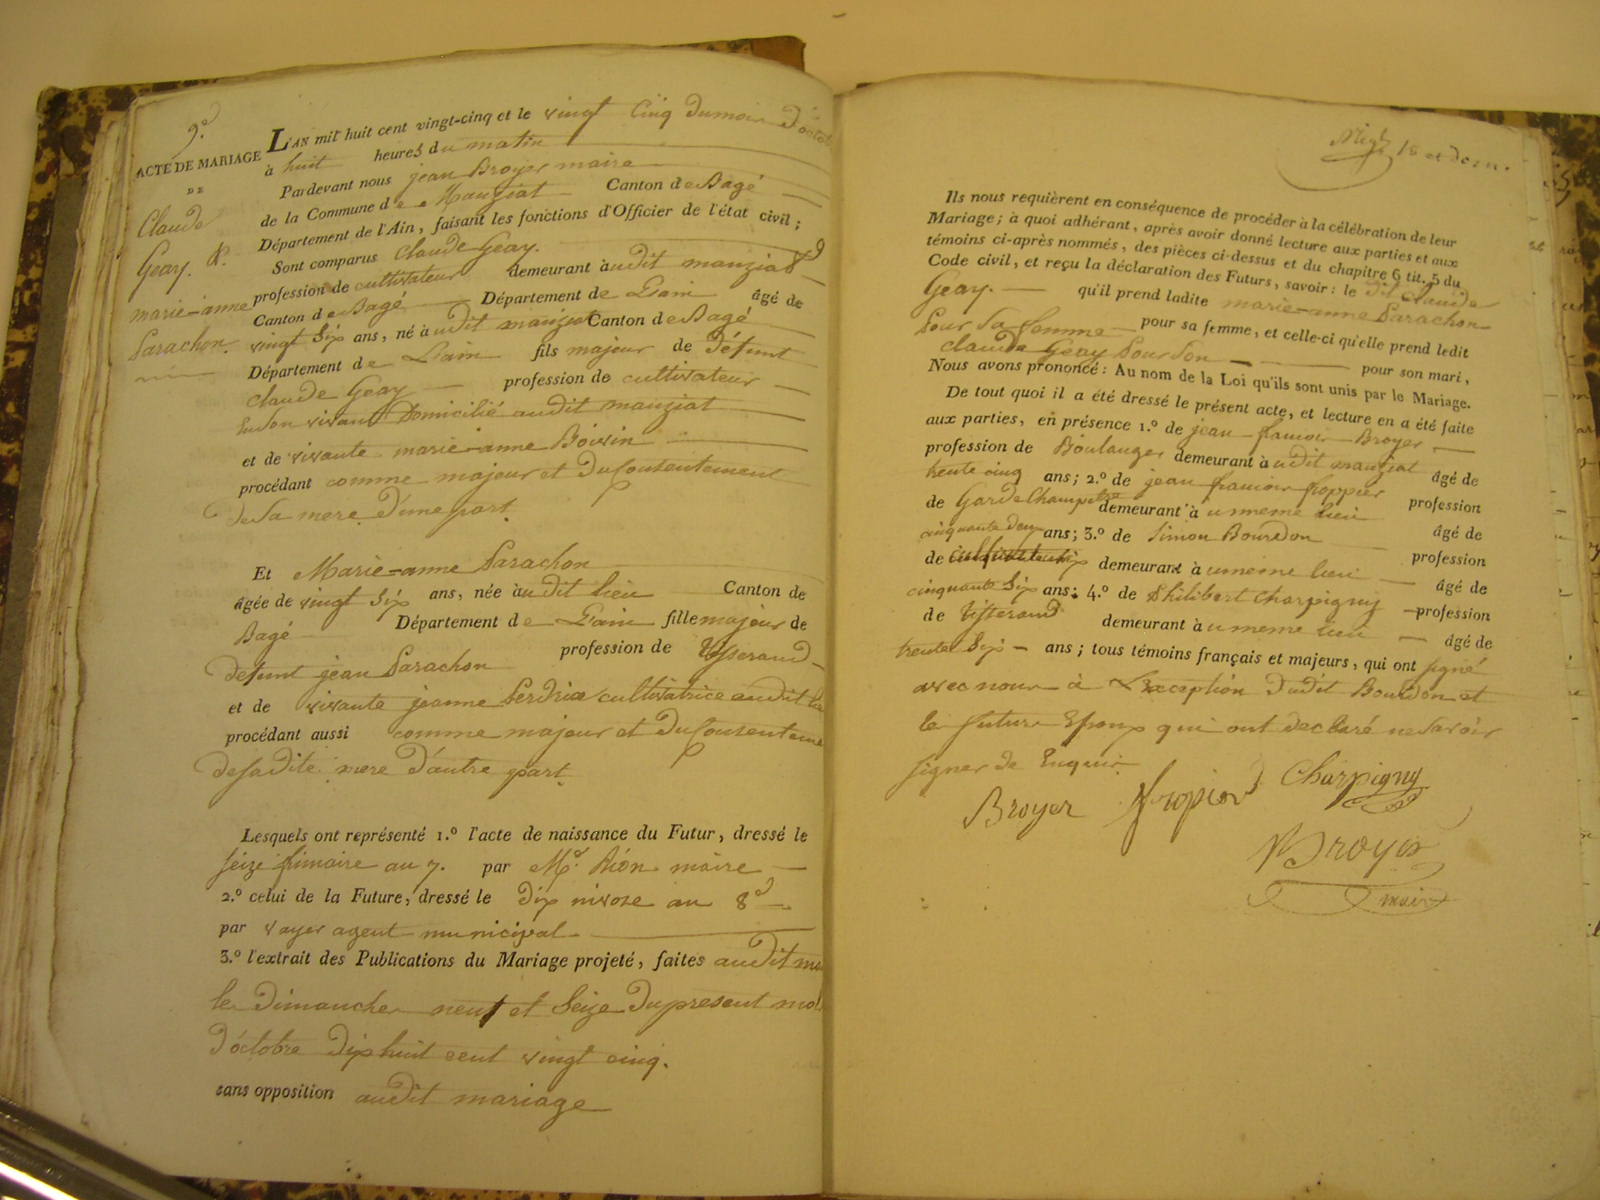 9.e
ACTE DE MARIAGE
DE
Claude
Geay. &.
marie-anne
Parachon.
L'AN mil huit cent vingt-cinq et le vingt Cinq du mois d'octob
à huit heures du matin
Pardevant nous jean Broyer maire
de la Commune de Manziat Canton de Bagé
Département de l'Ain, faisant les fonctions d'Officier de l'état civil;
Sont comparus Claude Geay.
profession de cultivateur demeurant audit manziat
Canton de Bagé Département de L'ain âgé de
vingt Six ans, né audit manziat Canton de Bagé
Département de L'ain fils majeur de défunt
Claude Geay profession de cultivateur
En son vivant Domicilié audit manziat
et de vivante marie-anne Boivin
procédant comme majeur et du Consentement
de Sa mere d'une part
Et Marie-anne Parachon
âgée de vingt Six ans, née audit lieu Canton de
Bagé Département de L'ain fille majeur de
defunt jean Parachon profession de Tisserand
et de vivante jeanne Perdrix cultivatrice audit lie
procédant aussi comme majeur et du Consenteme
de sa dite mere d'autre part
Lesquels ont représenté 1.º l'acte de naissance du Futur, dressé le
Seize frimaire an 7. par Mr. maire
2.º celui de la Future, dressé le dix nivose an 8e
par voyer agent municipal
3.º l'extrait des Publications du Mariage projeté, faites audit ma
le dimanche neuf et Seize du present moi
d'octobre dix huit cent vingt cinq.
sans opposition audit mariage
Ils nous requièrent en conséquence de procéder à la célébration de leur
Mariage; à quoi adhérant, après avoir donné lecture aux parties et aux
témoins ci-après nommés, des pièces ci-dessus et du chapitre 6 tit. 5 du
Code civil, et reçu la déclaration des Futurs, savoir: le dit Claude
Geay. qu'il prend ladite marie-anne Parachon
Pour Sa femme pour sa femme, et celle-ci qu'elle prend ledit
Claude Geay Pour Son pour son mari,
Nous avons prononcé: Au nom de la Loi qu'ils sont unis par le Mariage.
De tout quoi il a été dressé le présent acte, et lecture en a été faite
aux parties, en présence 1.º de jean francois Broyer
profession de Boulanger demeurant audit manziat âgé de
trente cinq ans; 2.º de jean francois froppier profession
de Garde Champetre demeurant au meme lieu âgé de
cinquante deux ans; 3.º de Simon Bourdon profession
de demeurant au meme lieu âgé de
cinquante Six ans; 4.º de Philibert Charpigny profession
de Tisserand demeurant au meme lieu âgé de
trente Six ans; tous témoins français et majeurs, qui ont signé
avec nous à L'exception dudit Bourdon et
le futurs Epoux qui ont declaré ne Savoir
signer de Enquis
Broyer fropier Charpigny
Broyer
maire